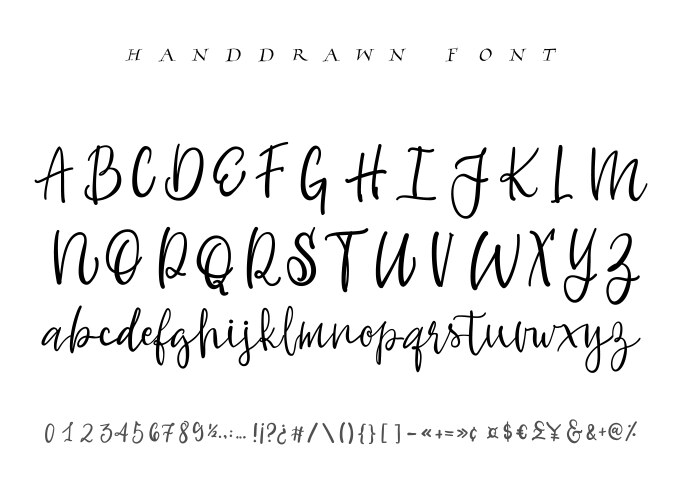 HANDDRAWN FONT
ABCDEFGHIJKLM
NOPQRSTUVWXYZ
abcdefghijklmnopqrstuvwxyz
0 1 2 3 4 5 6 7 8 9 ½ . , : ; … ! ¡ ? ¿ # / \ ( ) { } [ ] - « + = » ¢ ¤ $ € £ ¥ & & + @ %